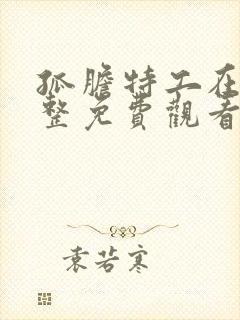 孤膽特工在
整免費觀看
袁若寒